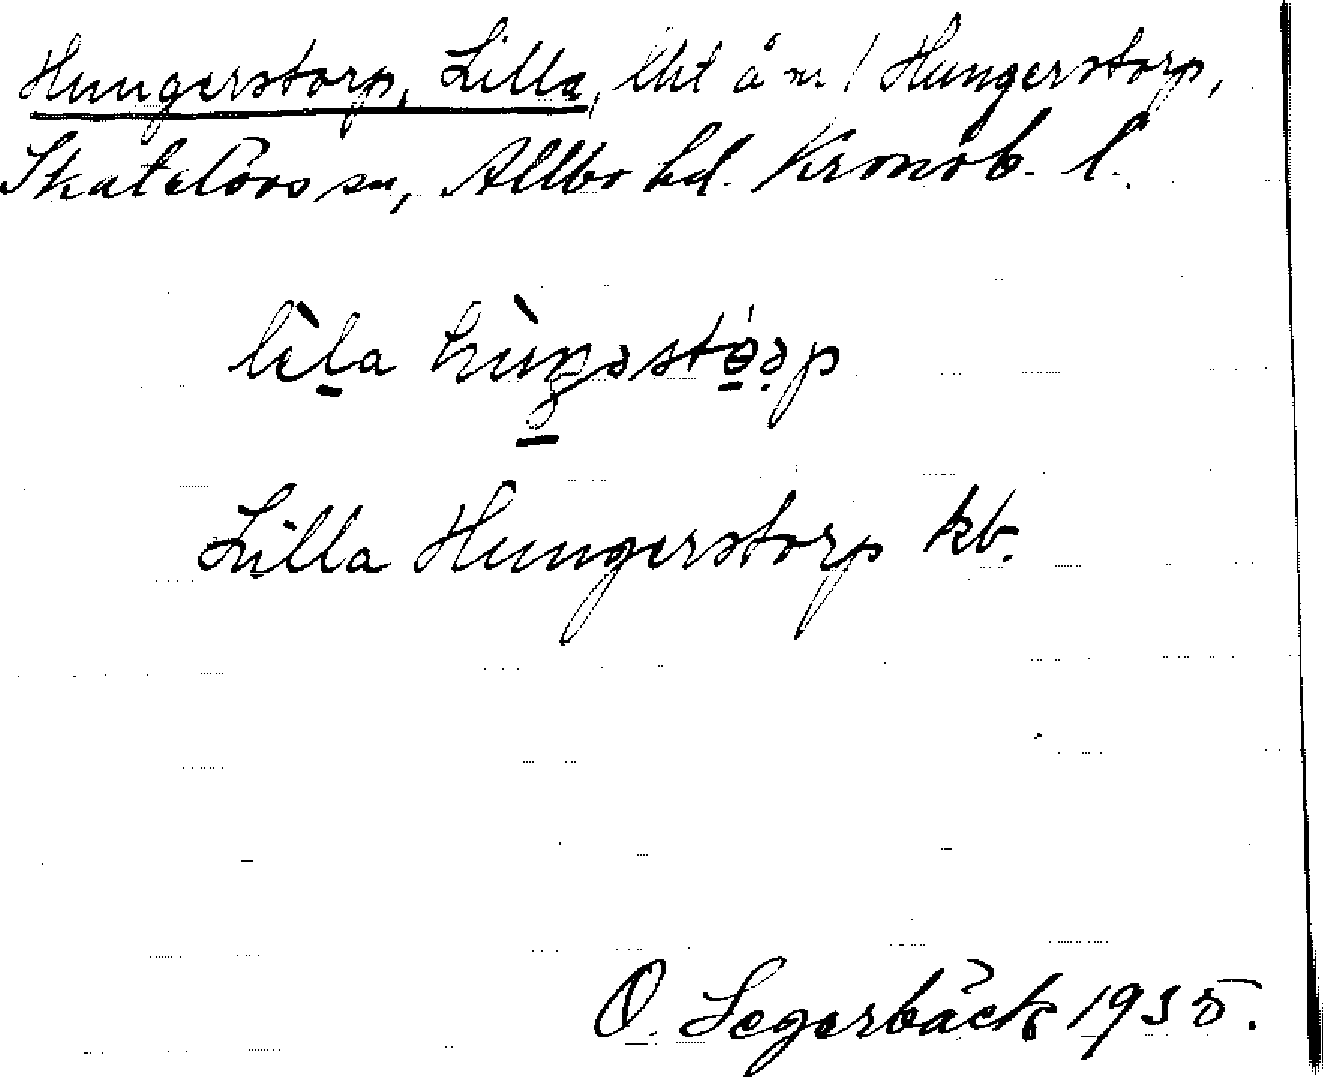 Hungerstorp, Lilla, lht å nr 1 Hungerstorp,
Skatelövs sn, Allbo hd. Kronob. l.
Lilla Hungerstorp kb.
O. Segerbäck 1935.